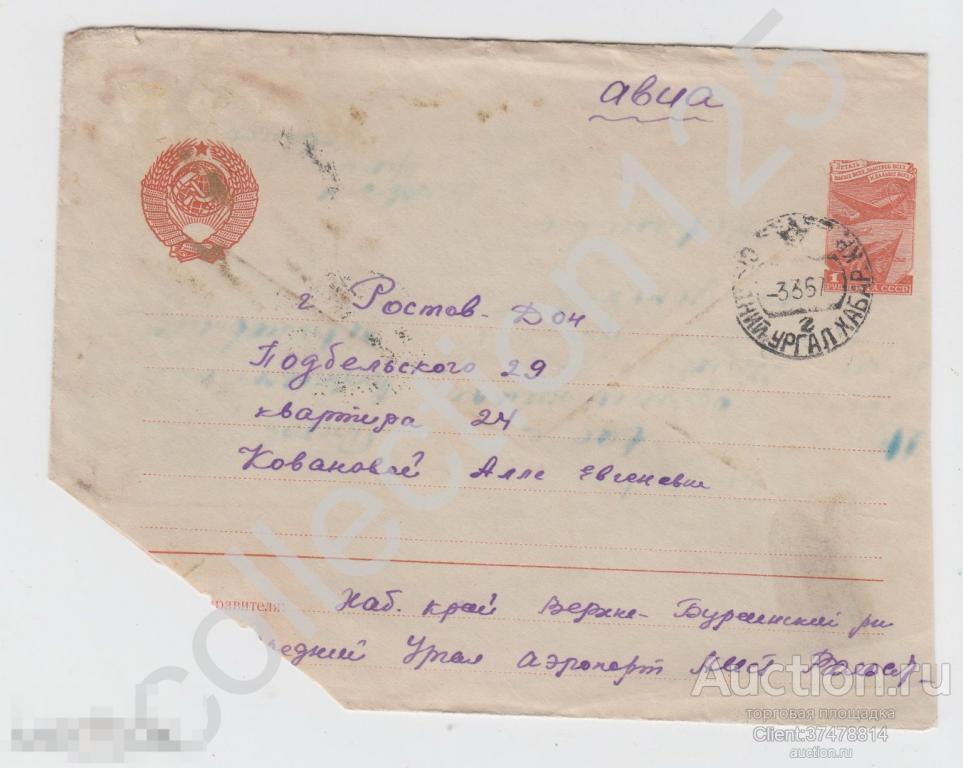 авиа
ЛЕТАТЬ
ВЫШЕ ВСЕХ, БЫСТРЕЕ ВСЕХ
И ДАЛЬШЕ ВСЕХ
1
СССР
-3357
2
УРГАЛ ХАБАР КР
г Ростов-Дон
Подбельского 29
квартира 24
Ковановой Алле Евгеневне
равителя: Хаб. край Верхне-Буреинский рн
редний Ургал аэропорт
collection125
Auction.ru
торговая площадка
Client:37478814
auction.ru